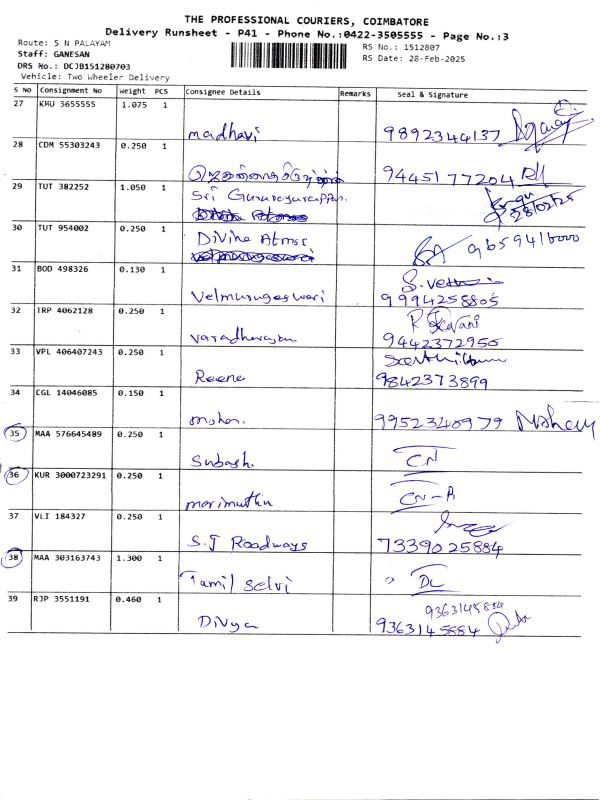 THE PROFESSIONAL COURIERS, COIMBATORE
Delivery Runsheet - P41 - Phone No.:0422-3505555 - Page No.:3
Route: S N PALAYAM
RS No.: 1512807
Staff: GANESAN
RS Date: 28-Feb-2025
DRS No.: DCJB151280703
Vehicle: Two Wheeler Delivery
S No Consignment No Weight PCS Consignee Details Remarks Seal & Signature
27 KMU 3655555 1.075 1
madhavi 9892344137
28 CDM 55303243 0.250 1
9445177204
29 TUT 382252 1.050 1
Sri
28/02/25
30 TUT 954002 0.250 1
Divine Atmos 9659416000
31 BOD 498326 0.130 1
Velmurugeswari 9994258805
32 TRP 4062128 0.250 1
varadharajan 9442372956
33 VPL 406407243 0.250 1
Reena 9842373899
34 CGL 14046085 0.150 1
mohan 9952340979
35 MAA 576645489 0.250 1
Subash. CN
36 KUR 3000723291 0.250 1
marimuthu CN-A
37 VLI 184327 0.250 1
S.J Roadways 7339025884
38 MAA 303163743 1.300 1
Tamil selvi DL
39 RJP 3551191 0.460 1
9363145884
Divya 9363145884